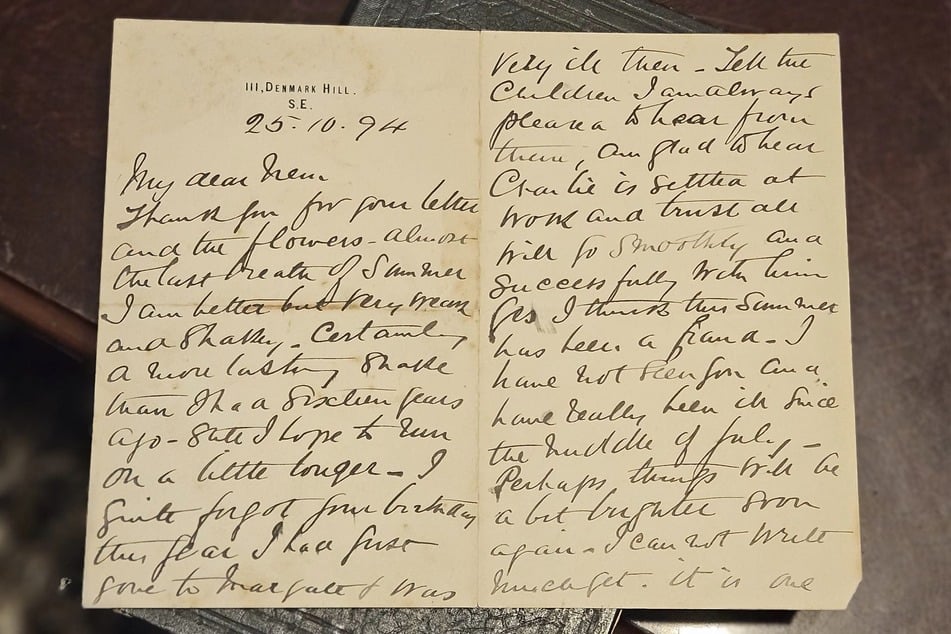 111, DENMARK HILL.
S.E.
25.10.94
My dear Nem
Thank you for your letter
and the flowers - almost
the last breath of Summer
I am better but very weak
and Shakky - Certainly
a more lasting Shake
than I had Sixteen years
ago - Still I hope to run
on a little longer - I
quite forgot your birthday
this year I had just
gone to Margate & was
very ill then - Tell the
Children I am always
pleased to hear from
them, am glad to hear
Charlie is settled at
work and trust all
will go Smoothly and
Successfully with him
Yes I think this Summer
has been a fraud - I
have not seen you and
have really been ill since
the middle of July -
Perhaps things will be
a bit brighter soon
again - I can not write
much yet. it is one